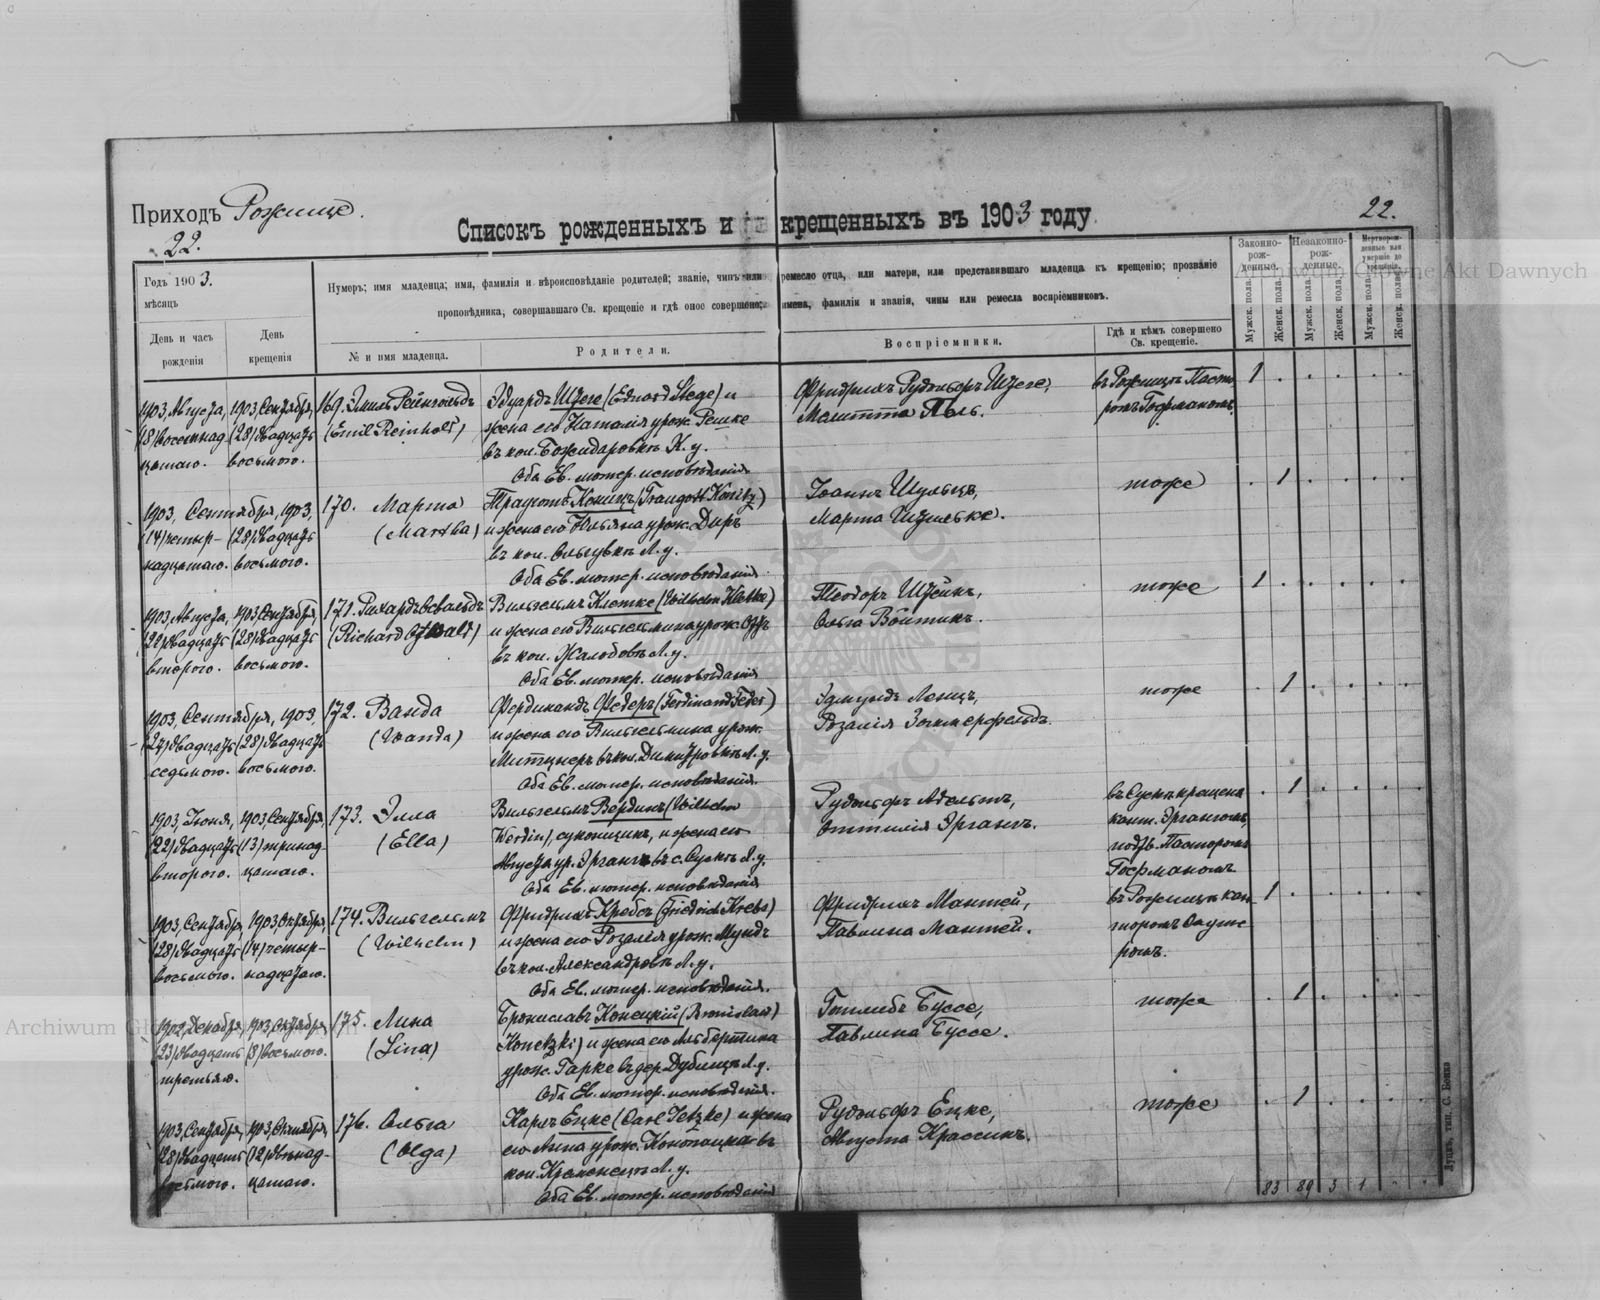 Приходъ Рожище.
Списокъ рожденныхъ и крещенныхъ въ 1903 году
22.
22.
Годъ 1903.
мѣсяцъ
День и часъ рожденія
День крещенія
Нумеръ; имя младенца; имя, фамилія и вѣроисповѣданіе родителей; званіе, чинъ или ремесло отца, или матери, или представившаго младенца къ крещенію; прозваніе
проповѣдника, совершавшаго Св. крещеніе и гдѣ оное совершено; имена, фамиліи и званія, чины или ремесла воспріемниковъ.
№ и имя младенца.
Родители.
Воспріемники.
Гдѣ и кѣмъ совершено Св. крещеніе.
Законно-рож-денные.
Незаконно-рож-денные.
Мертворож-денные или умершіе до крещенія.
Мужск. пола.
Женск. пола.
Мужск. пола.
Женск. пола.
Мужск. пола.
Женск. пола.
1903, Августа, 1903, Сентября, 169. Эмиль Рейнгольдъ Эдуардъ Штеге (Eduard Stege) и Фридрихъ Рудольфъ Штеге, въ Рожищѣ Пасто- 1
(18) восемнад- (28) двадцать (Emil Reinhold) жена его Наталія урож. Решке ромъ Гофманомъ.
цатаго. восьмого. въ кол. Божидаровкѣ Л. у.
Оба Ев. лютер. исповѣданія
1903, Сентября, 1903, 170. Марта Трауготъ Коницъ (Traugott Konitz) Іоаннъ Шульцъ, тоже 1
(14) четыр- (28) двадцать (Martha) и жена его Юльяна урож. Диръ
надцатаго. восьмого. въ кол. Л. у.
Оба Ев. лютер. исповѣданія
1903, Августа, 1903, Сентября, 171. Рихардъ Освальдъ Вильгельмъ Клетке (Wilhelm Kletke) Теодоръ Штейкъ, тоже 1
(22) двадцать (28) двадцать (Richard Oswald) и жена его Вильгельмина урож.
второго. восьмого. въ кол. Жалобовѣ Л. у.
Оба Ев. лютер. исповѣданія
1903, Сентября, 1903, 172. Ванда Фердинандъ Федеръ (Ferdinand Feder) Эдмундъ Ленцъ, тоже 1
(27) двадцать (28) двадцать (Wanda) и жена его Вильгельмина урож. Розалія Зоммерфельдъ.
седьмого. восьмого. въ кол. Димитровкѣ Л. у.
Оба Ев. лютер. исповѣданія.
1903, Іюня, 1903, Сентября, 173. Элла Вильгельмъ Вердинъ (Wilhelm Рудольфъ въ Сускѣ крещена 1
(22) двадцать (13) тринад- (Ella) Werdin), и жена его Оттилія Эрганъ. кант. Эрганомъ,
второго. цатаго. Августа ур. Эрганъ въ с. Сускѣ Л. у. подтв. Пасторомъ
Оба Ев. лютер. исповѣданія Гофманомъ
1903, Сентября, 1903, Октября, 174. Вильгельмъ Фридрихъ Кребсъ (Friedrich Krebs) Фридрихъ Мантей, въ Рожищѣ кан- 1
(28) двадцать (14) четыр- (Wilhelm) и жена его Розалія урож. Мундъ Павлина Мантей. торомъ
восьмого. надцатаго. въ кол. Александровкѣ Л. у.
Оба Ев. лютер. исповѣданія.
1902, Декабря, 1903, Октября, 175. Лина Брониславъ Конецкій (Bronislaw Готлибъ Буссе, тоже 1
(23) двадцать (8) восьмого. (Lina) Konetzki) и жена его Альбертина Павлина Буссе.
третьяго. урож. Гарке въ дер. Дубищѣ Л. у.
Оба Ев. лютер. исповѣданія.
1903, Сентября, 1903, Октября, 176. Ольга Карлъ Ецке (Carl Jetzke) и жена Рудольфъ Ецке, тоже 1
(28) двадцать (12) двѣнад- (Olga) его Анна урож. въ Августа Крассинъ.
восьмого. цатаго. кол. Кременецъ Л. у.
Оба Ев. лютер. исповѣданія
83 89 3 1
Луцкъ, тип. С. Бокка
Archiwum Główne Akt Dawnych